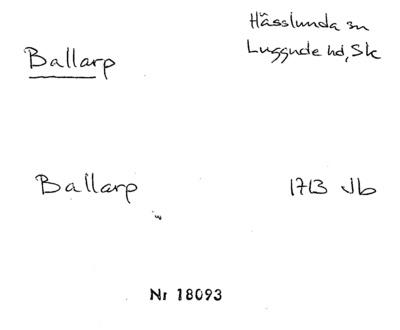 Hässlunda sn
Luggude hd, Sk
Ballarp
Ballarp 1713 Jb
Nr 18093